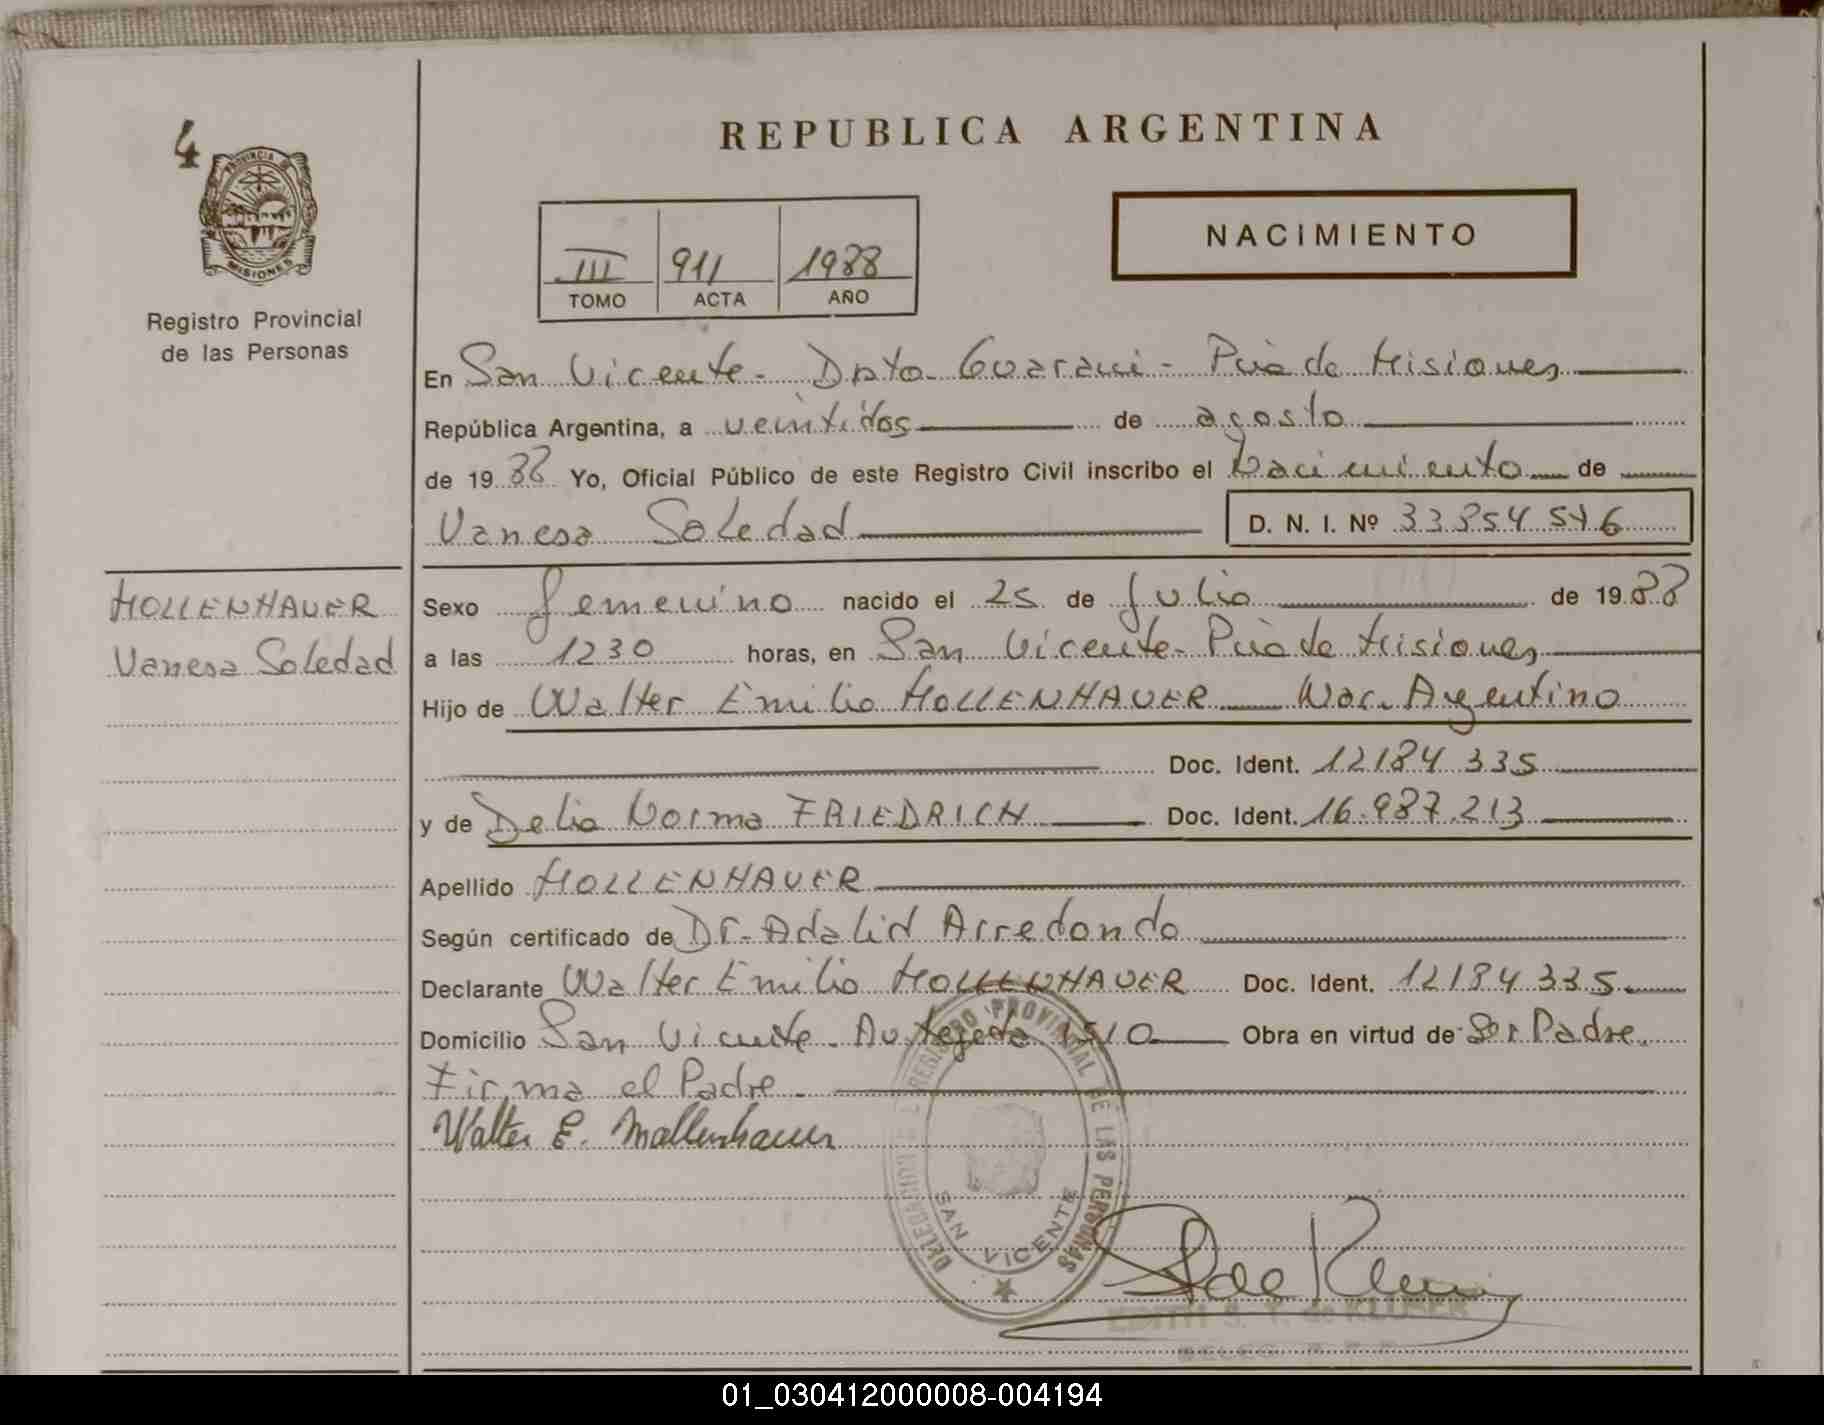 4
REPUBLICA ARGENTINA
PROVINCIA DE
MISIONES
Registro Provincial
de las Personas
NACIMIENTO
III 911 1988
TOMO ACTA AÑO
En San Vicente - Dpto Guarani - Pcia de Misiones
República Argentina, a veintidos de agosto
de 1988 Yo, Oficial Público de este Registro Civil inscribo el Nacimiento de
Vanesa Soledad D. N. I. Nº
HOLLENHAUER
Vanesa Soledad
Sexo femenino nacido el 25 de Julio de 1988
a las 1230 horas, en San Vicente - Pcia de Misiones
Hijo de Walter Emilio HOLLENHAUER Nac. Argentino
Doc. Ident. 12184 335
y de Delia Norma FRIEDRICH Doc. Ident. 16.987.213
Apellido HOLLENHAUER
Según certificado de Dr. Adalid Arredondo
Declarante Walter Emilio HOLLENHAUER Doc. Ident. 12184 335
Domicilio San Vicente - Av Tejeda 1510 Obra en virtud de Ser Padre.
Firma el Padre.
Walter E. Mollenhauer
REGISTRO PROVINCIAL DE LAS PERSONAS
SAN VICENTE
EDITH S. T. de KLUBER
01_030412000008-004194